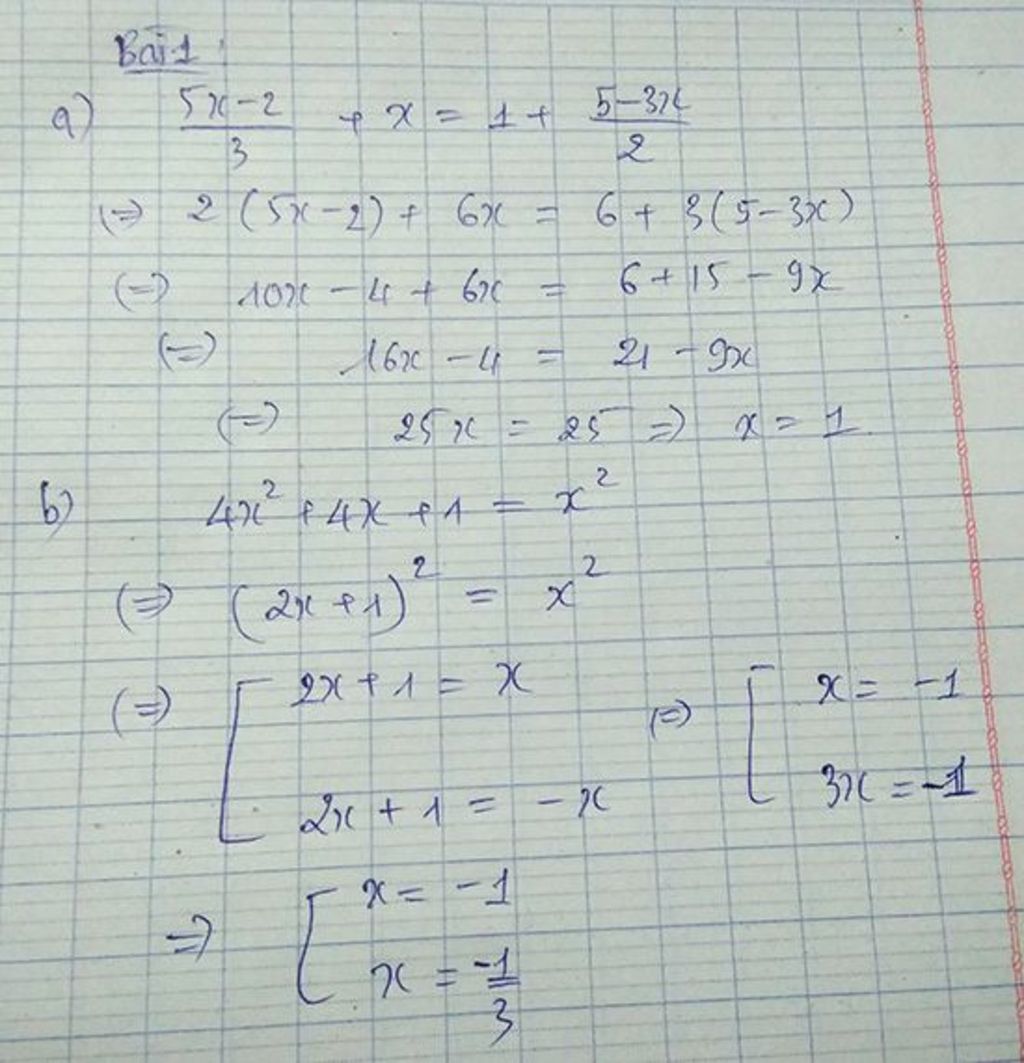 Bài 1:
a) \frac{5x-2}{3} + x = 1 + \frac{5-3x}{2}
(=) 2(5x-2) + 6x = 6 + 3(5-3x)
(=) 10x - 4 + 6x = 6 + 15 - 9x
(=) 16x - 4 = 21 - 9x
(=) 25x = 25 => x = 1
b) 4x² + 4x + 1 = x²
(=) (2x+1)² = x²
(=) [ 2x + 1 = x (=) [ x = -1
2x + 1 = -x 3x = -1
=> [ x = -1
x = \frac{-1}{3}